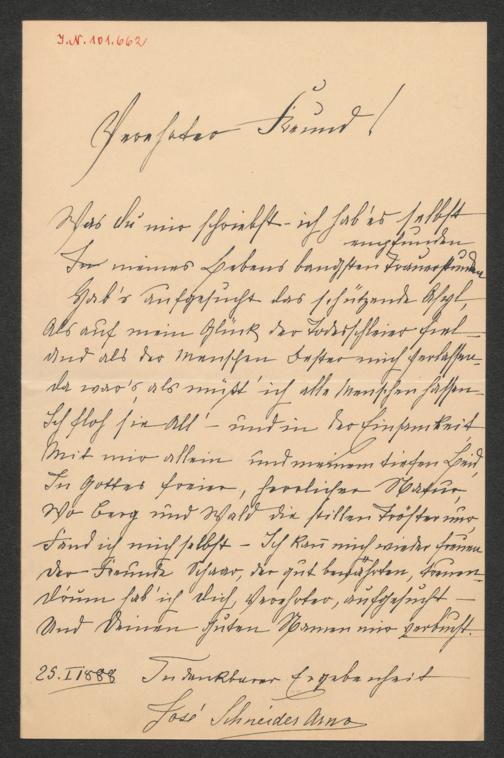 J.N. 101.662
Verehrter Freund!
Was Du mir schriebst – ich hab' es selbst
empfunden
In meines Lebens bangsten Trauerstunden
Hab's aufgesucht das schützende Asyl,
Als auf mein Glück der Todesschleier fiel –
Und als der Menschen bester mich verlassen –
Da war's, als müßt' ich alle Menschen hassen –
Ich floh sie all' – und in der Einsamkeit
Mit mir allein und meinem tiefen Leid,
In Gottes freier, herrlicher Natur,
Wo Berg und Wald die stillen Tröster nur,
Fand ich mich selbst – Ich kam mich wieder freuen
Der Freunde Schaar, der gut bewährten, treuen –
D'rum hab' ich Dich, Verehrter, aufgesucht –
Und Deinen guten Namen mir verbucht.
25. I 1888 In dankbarer Ergebenheit
José Schneider Arno